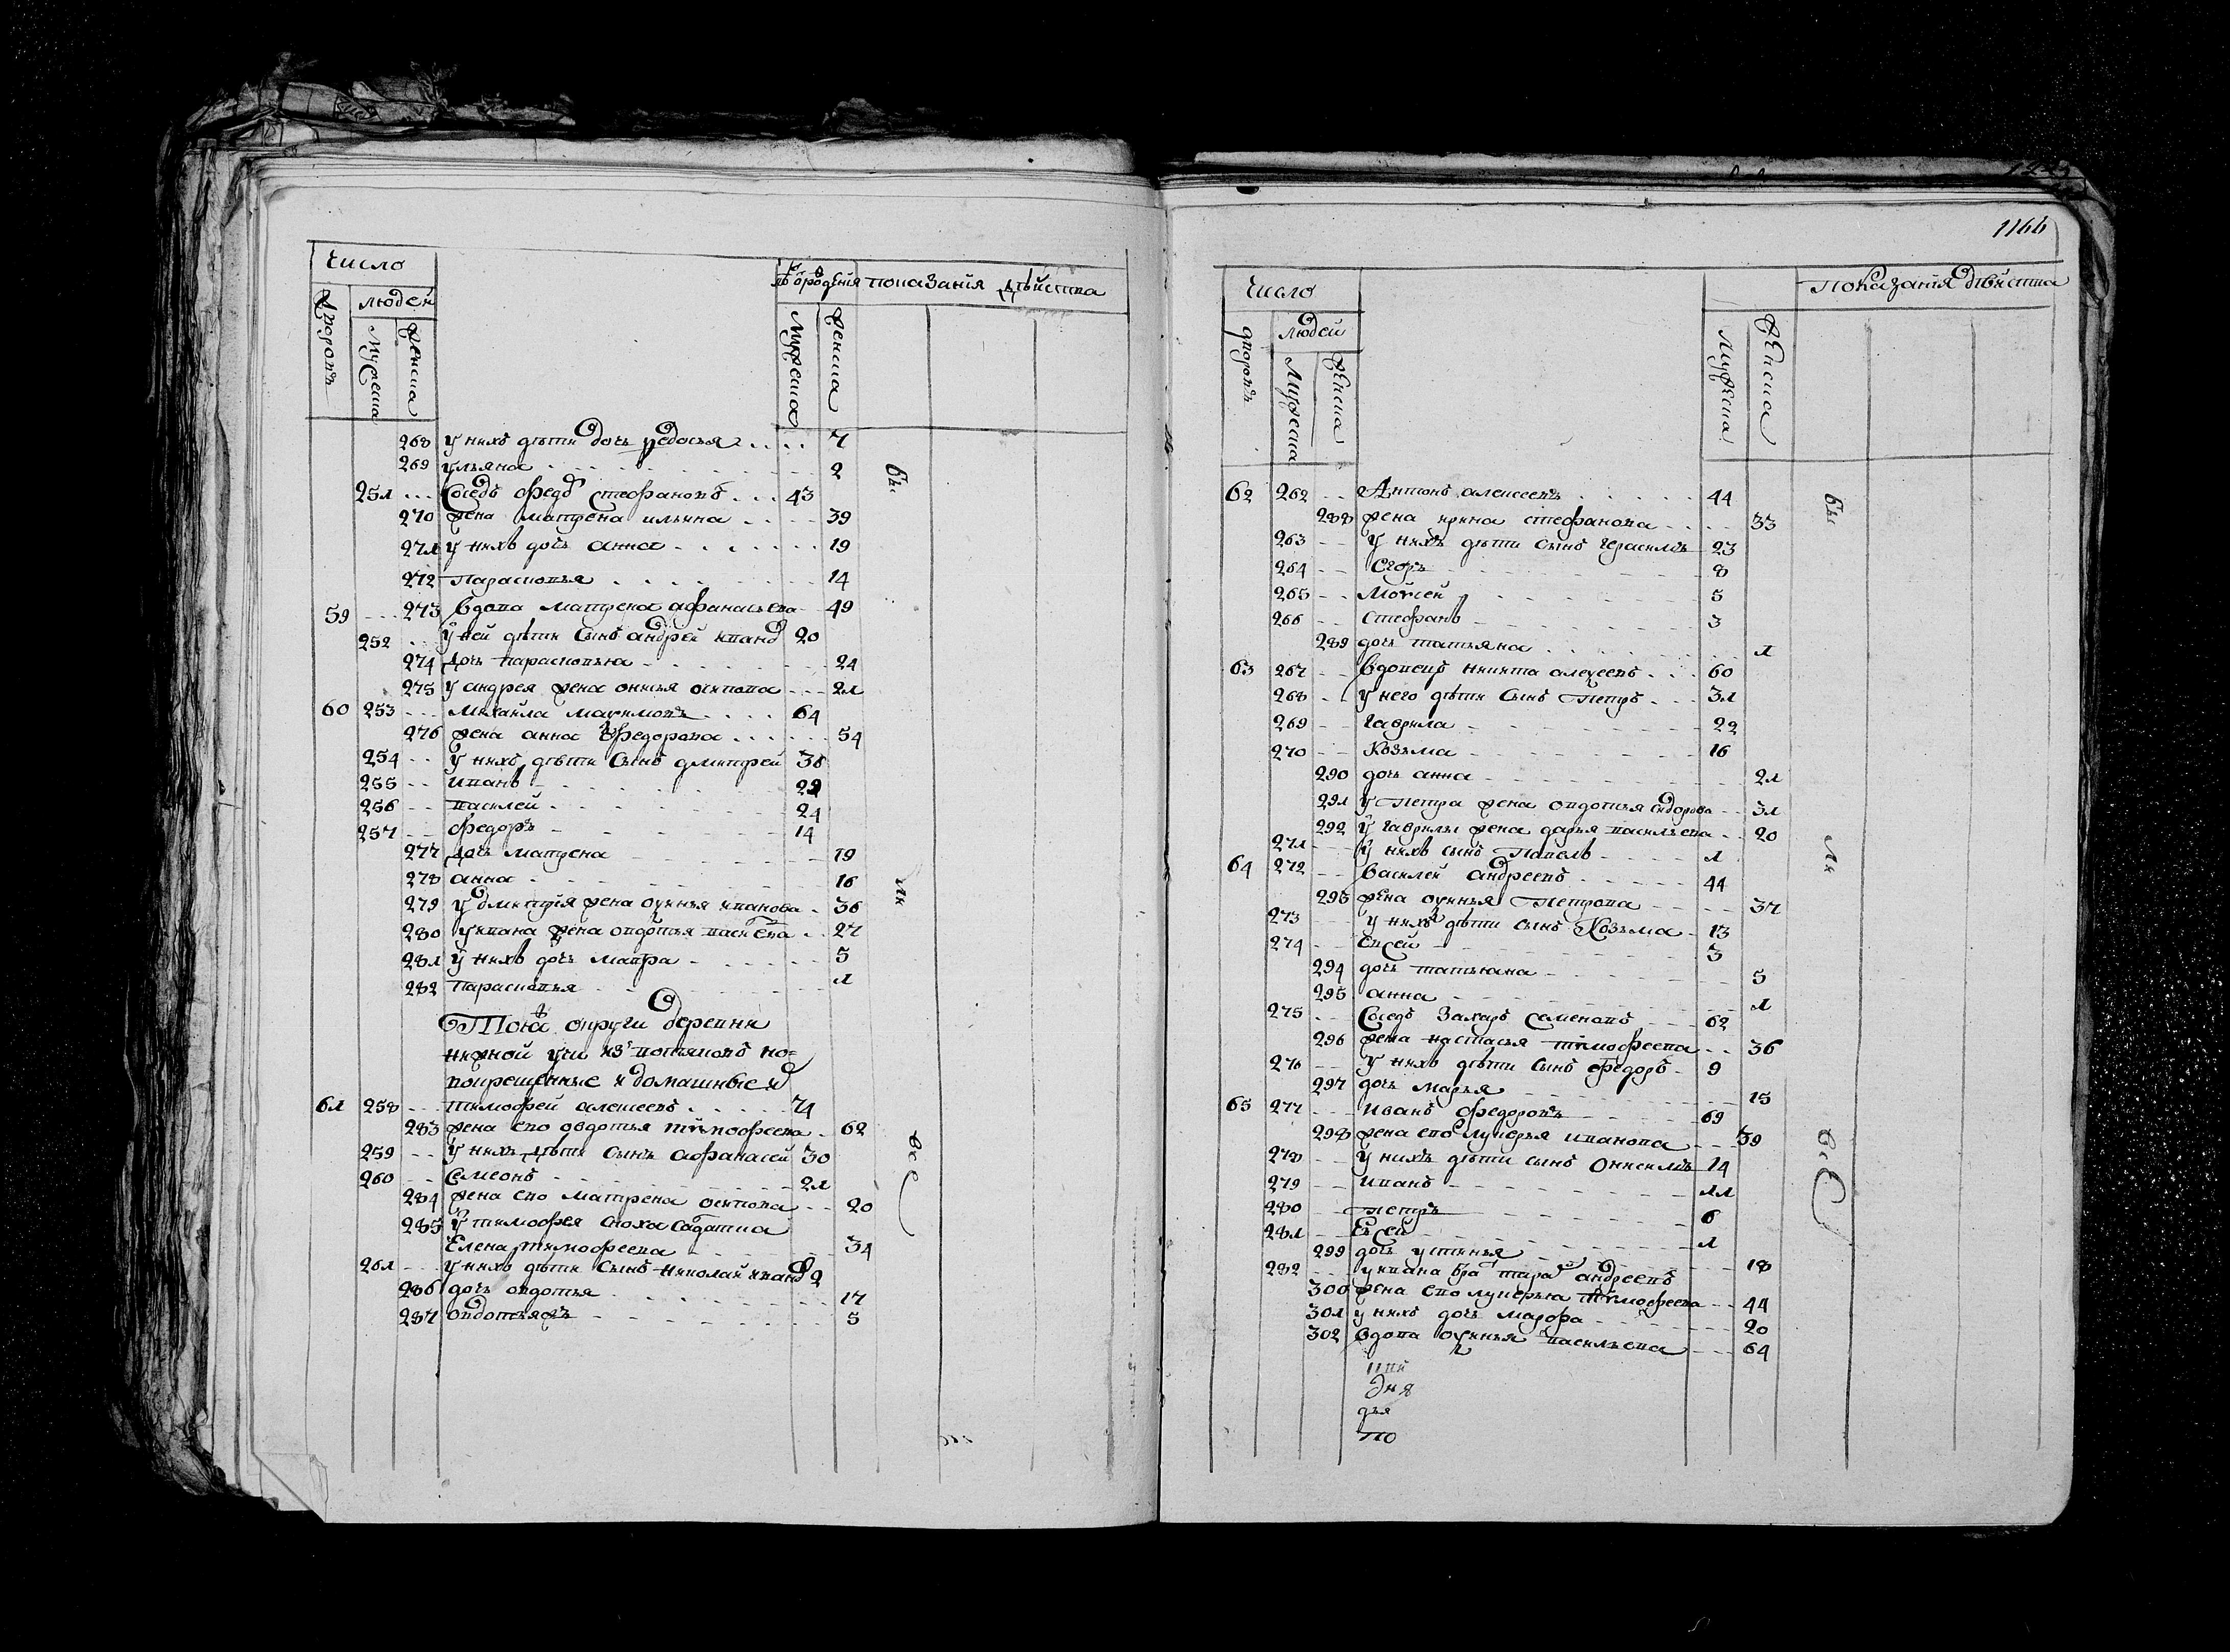 Число
лѣ ѿ рожденія показанія дѣйства
людей
дворовъ
мужеска
женска
мужеска
женска
268 у нихъ дѣти дочь ѳедосья 7
269 ульяна 2
251 Соседъ ѳедоръ стеѳановъ 43
270 жена матрена ильина 39
271 у нихъ дочь анна 19
272 парасковья 14
59 273 вдова матрена аѳанасьева 49
252 у ней дѣти сынъ андрей иванъ 20
274 дочь парасковья 24
275 у андрея жена онисья осипова 21
60 253 михаила маѯимовъ 64
276 жена анна ѳедорова 54
254 у нихъ дѣти сынъ дмитрей 38
255 иванъ 29
256 василей 24
257 ѳедоръ 14
277 дочь матрена 19
278 анна 16
279 у дмитрия жена оѯинья иванова 36
280 у ивана жена овдотья васильева 27
281 у нихъ дочь мавра 5
282 парасковья 1
бы
ли
все
Тоя округи деревни
нижной уси из вотяковъ но=
вокрещенные и домашные и
61 258 тимоѳей алексеевъ 74
283 жена ево овдотья тимоѳеева 62
259 у нихъ дѣти сынъ аѳанасей 30
260 семеонъ 21
284 жена ево матрена осипова 20
285 у тимоѳея сноха салдатка
Елена тимоѳеева 34
261 у нихъ дѣти сынъ николай иванъ 2
286 дочь овдотья 17
287 овдотья жъ 5
1166
Число
показанія дѣйства
людей
дворовъ
мужеска
женска
мужеска
женска
62 262 Антонъ алексеевъ 44
288 жена ирина стеѳанова 33
263 у нихъ дѣти сынъ герасимъ 23
264 Егоръ 8
265 Моисей 5
266 стеѳанъ 3
289 дочь татьяна 1
63 267 вдовецъ никита алеѯеевъ 60
268 у него дѣти сынъ петръ 31
269 гаврила 22
270 Козьма 16
290 дочь анна 21
291 у петра жена овдотья сидорова 31
292 у гаврилы жена дарья васильева 20
271 у нихъ сынъ павелъ 1
64 272 василей андреевъ 44
293 жена оѯинья петрова 37
273 у нихъ дѣти сынъ Козьма 13
274 евсей 3
294 дочь татьяна 5
295 анна 1
275 Соседъ Захаръ семеновъ 62
296 жена настасья тимоѳеева 36
276 у нихъ дѣти сынъ ѳедоръ 9
297 дочь марья 15
65 277 иванъ ѳедоровъ 69
298 жена ево лукерья иванова 39
278 у нихъ дѣти сынъ онисимъ 14
279 иванъ 11
280 петръ 6
281 Евсей 1
299 дочь устинья 18
282 у ивана братъ тарасъ андреевъ
300 жена ево лукерья тимоѳеева 44
301 у нихъ дочь марѳа 20
302 вдова оѯинья васильева 64
бы
ли
все
дья
то